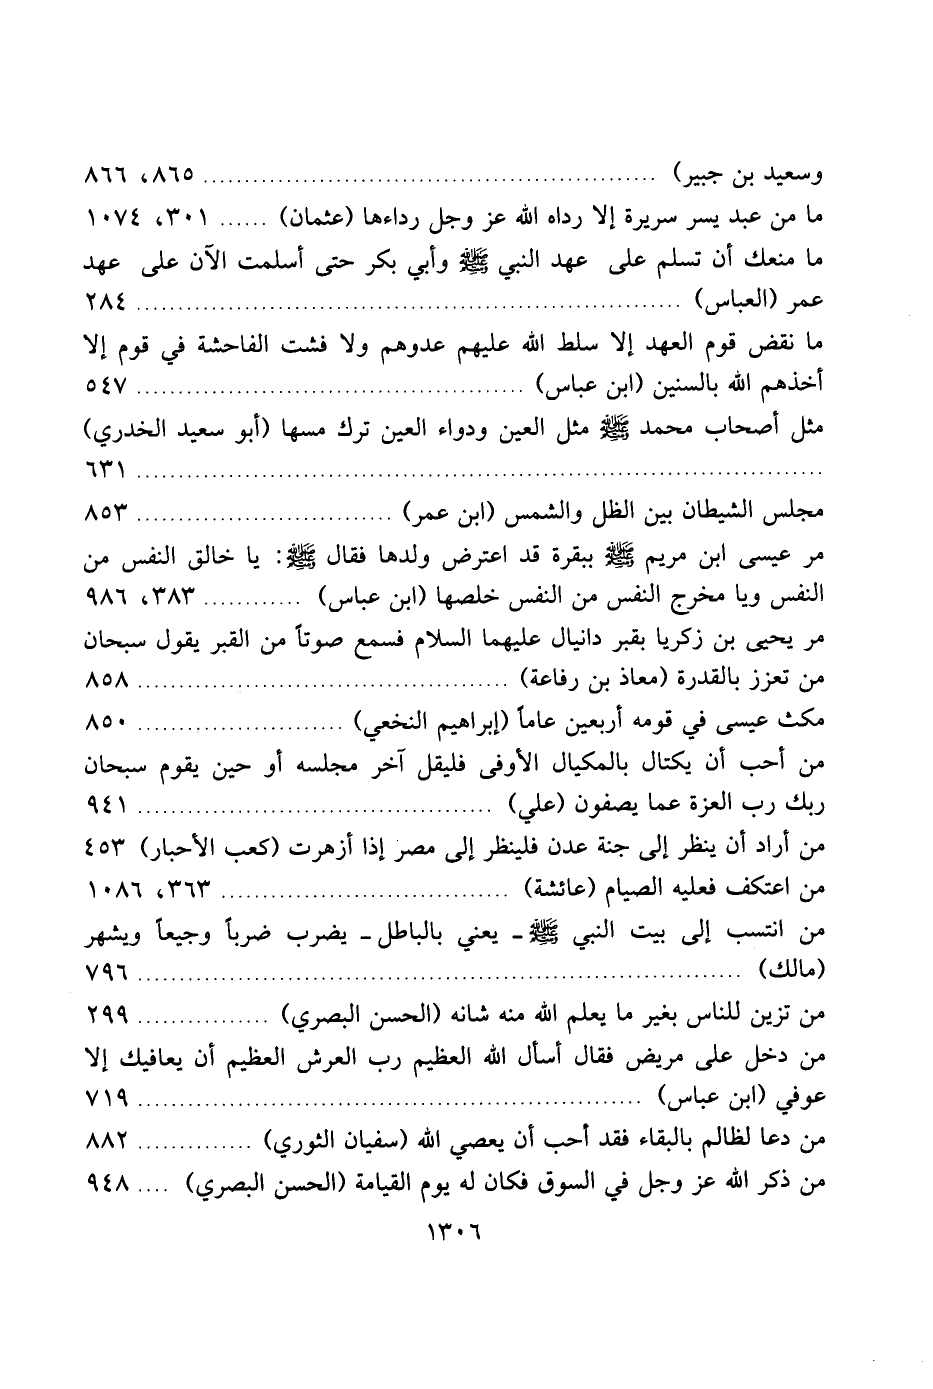 وسعيد بن جبير) ........................................ ٨٦٥، ٨٦٦
ما من عبد يسر سريرة إلا رداه الله عز وجل رداءها (عثمان) ...... ٣٠١، ١٠٧٤
ما منعك أن تسلم على عهد النبي ﷺ وأبي بكر حتى أسلمت الآن على عهد
عمر (العباس) ........................................ ٢٨٤
ما نقض قوم العهد إلا سلط الله عليهم عدوهم ولا فشت الفاحشة في قوم إلا
أخذهم الله بالسنين (ابن عباس) ........................................ ٥٤٧
مثل أصحاب محمد ﷺ مثل العين ودواء العين ترك مسها (أبو سعيد الخدري)
........................................ ٦٣١
مجلس الشيطان بين الظل والشمس (ابن عمر) ............................... ٨٥٣
مر عيسى ابن مريم ﷺ ببقرة قد اعترض ولدها فقال ﷺ: يا خالق النفس من
النفس ويا مخرج النفس من النفس خلصها (ابن عباس) ............ ٣٨٣، ٩٨٦
مر يحيى بن زكريا بقبر دانيال عليهما السلام فسمع صوتاً من القبر يقول سبحان
من تعزز بالقدرة (معاذ بن رفاعة) ........................................ ٨٥٨
مكث عيسى في قومه أربعين عاماً (إبراهيم النخعي) ......................... ٨٥٠
من أحب أن يكتال بالمكيال الأوفى فليقل آخر مجلسه أو حين يقوم سبحان
ربك رب العزة عما يصفون (علي) ........................................ ٩٤١
من أراد أن ينظر إلى جنة عدن فلينظر إلى مصر إذا أزهرت (كعب الأحبار) ٤٥٣
من اعتكف فعليه الصيام (عائشة) ................................... ٣٦٣، ١٠٨٦
من انتسب إلى بيت النبي ﷺ ـ يعني بالباطل ـ يضرب ضرباً وجيعاً ويشهر
(مالك) ........................................ ٧٩٦
من تزين للناس بغير ما يعلم الله منه شانه (الحسن البصري) ................ ٢٩٩
من دخل على مريض فقال أسأل الله العظيم رب العرش العظيم أن يعافيك إلا
عوفي (ابن عباس) ........................................ ٧١٩
من دعا لظالم بالبقاء فقد أحب أن يعصي الله (سفيان الثوري) .............. ٨٨٢
من ذكر الله عز وجل في السوق فكان له يوم القيامة (الحسن البصري) .... ٩٤٨
١٣٠٦